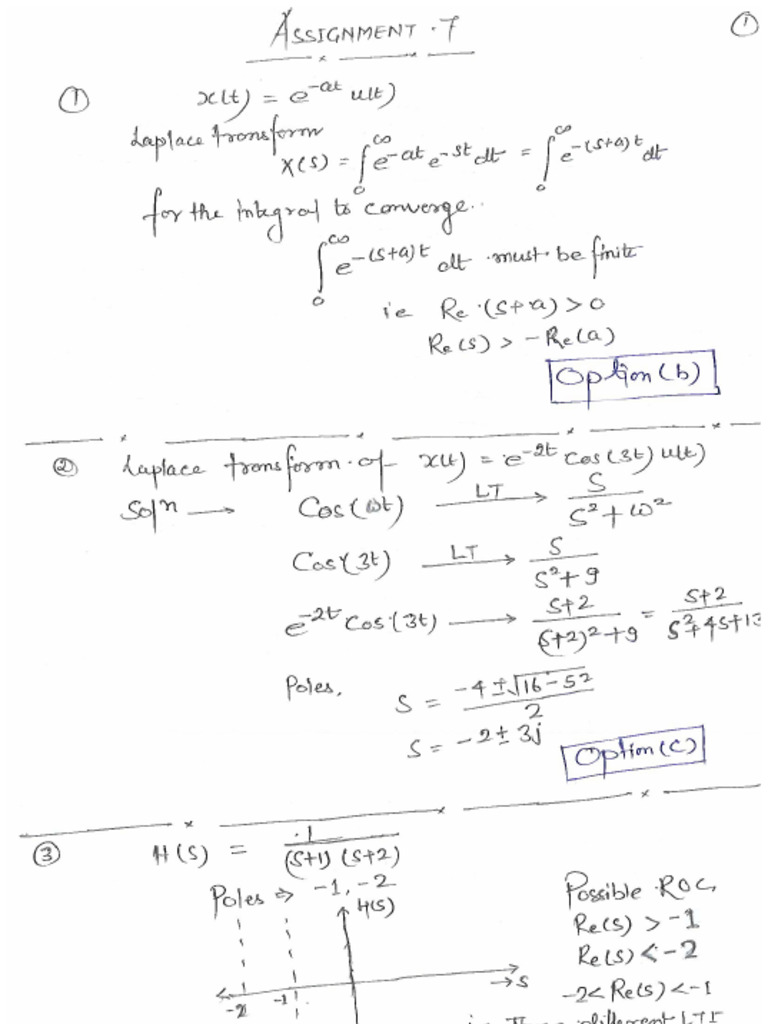 ASSIGNMENT.7
①
① x(t) = e^-at u(t)
Laplace transform
X(s) = ∫₀^∞ e^-at e^-st dt = ∫₀^∞ e^-(s+a)t dt
for the integral to converge..
∫₀^∞ e^-(s+a)t dt must be finite
ie Re (s+a) > 0
Re(s) > -Re(a)
Option (b)
② Laplace transform of x(t) = e^-2t Cos(3t) u(t)
Solⁿ → Cos(ωt) —LT→ S/(S²+ω²)
Cos(3t) —LT→ S/(S²+9)
e^-2t Cos(3t) → (S+2)/((S+2)²+9) = (S+2)/(S²+4S+13
Poles, S = (-4 ± √16-52)/2
S = -2 ± 3j
Option (c)
③ H(S) = 1/((S+1)(S+2))
Poles ⇒ -1, -2
Possible ROC,
H(S)
Re(s) > -1
Re(s) < -2
→S
-2 < Re(s) < -1
-2 -1
different LTI